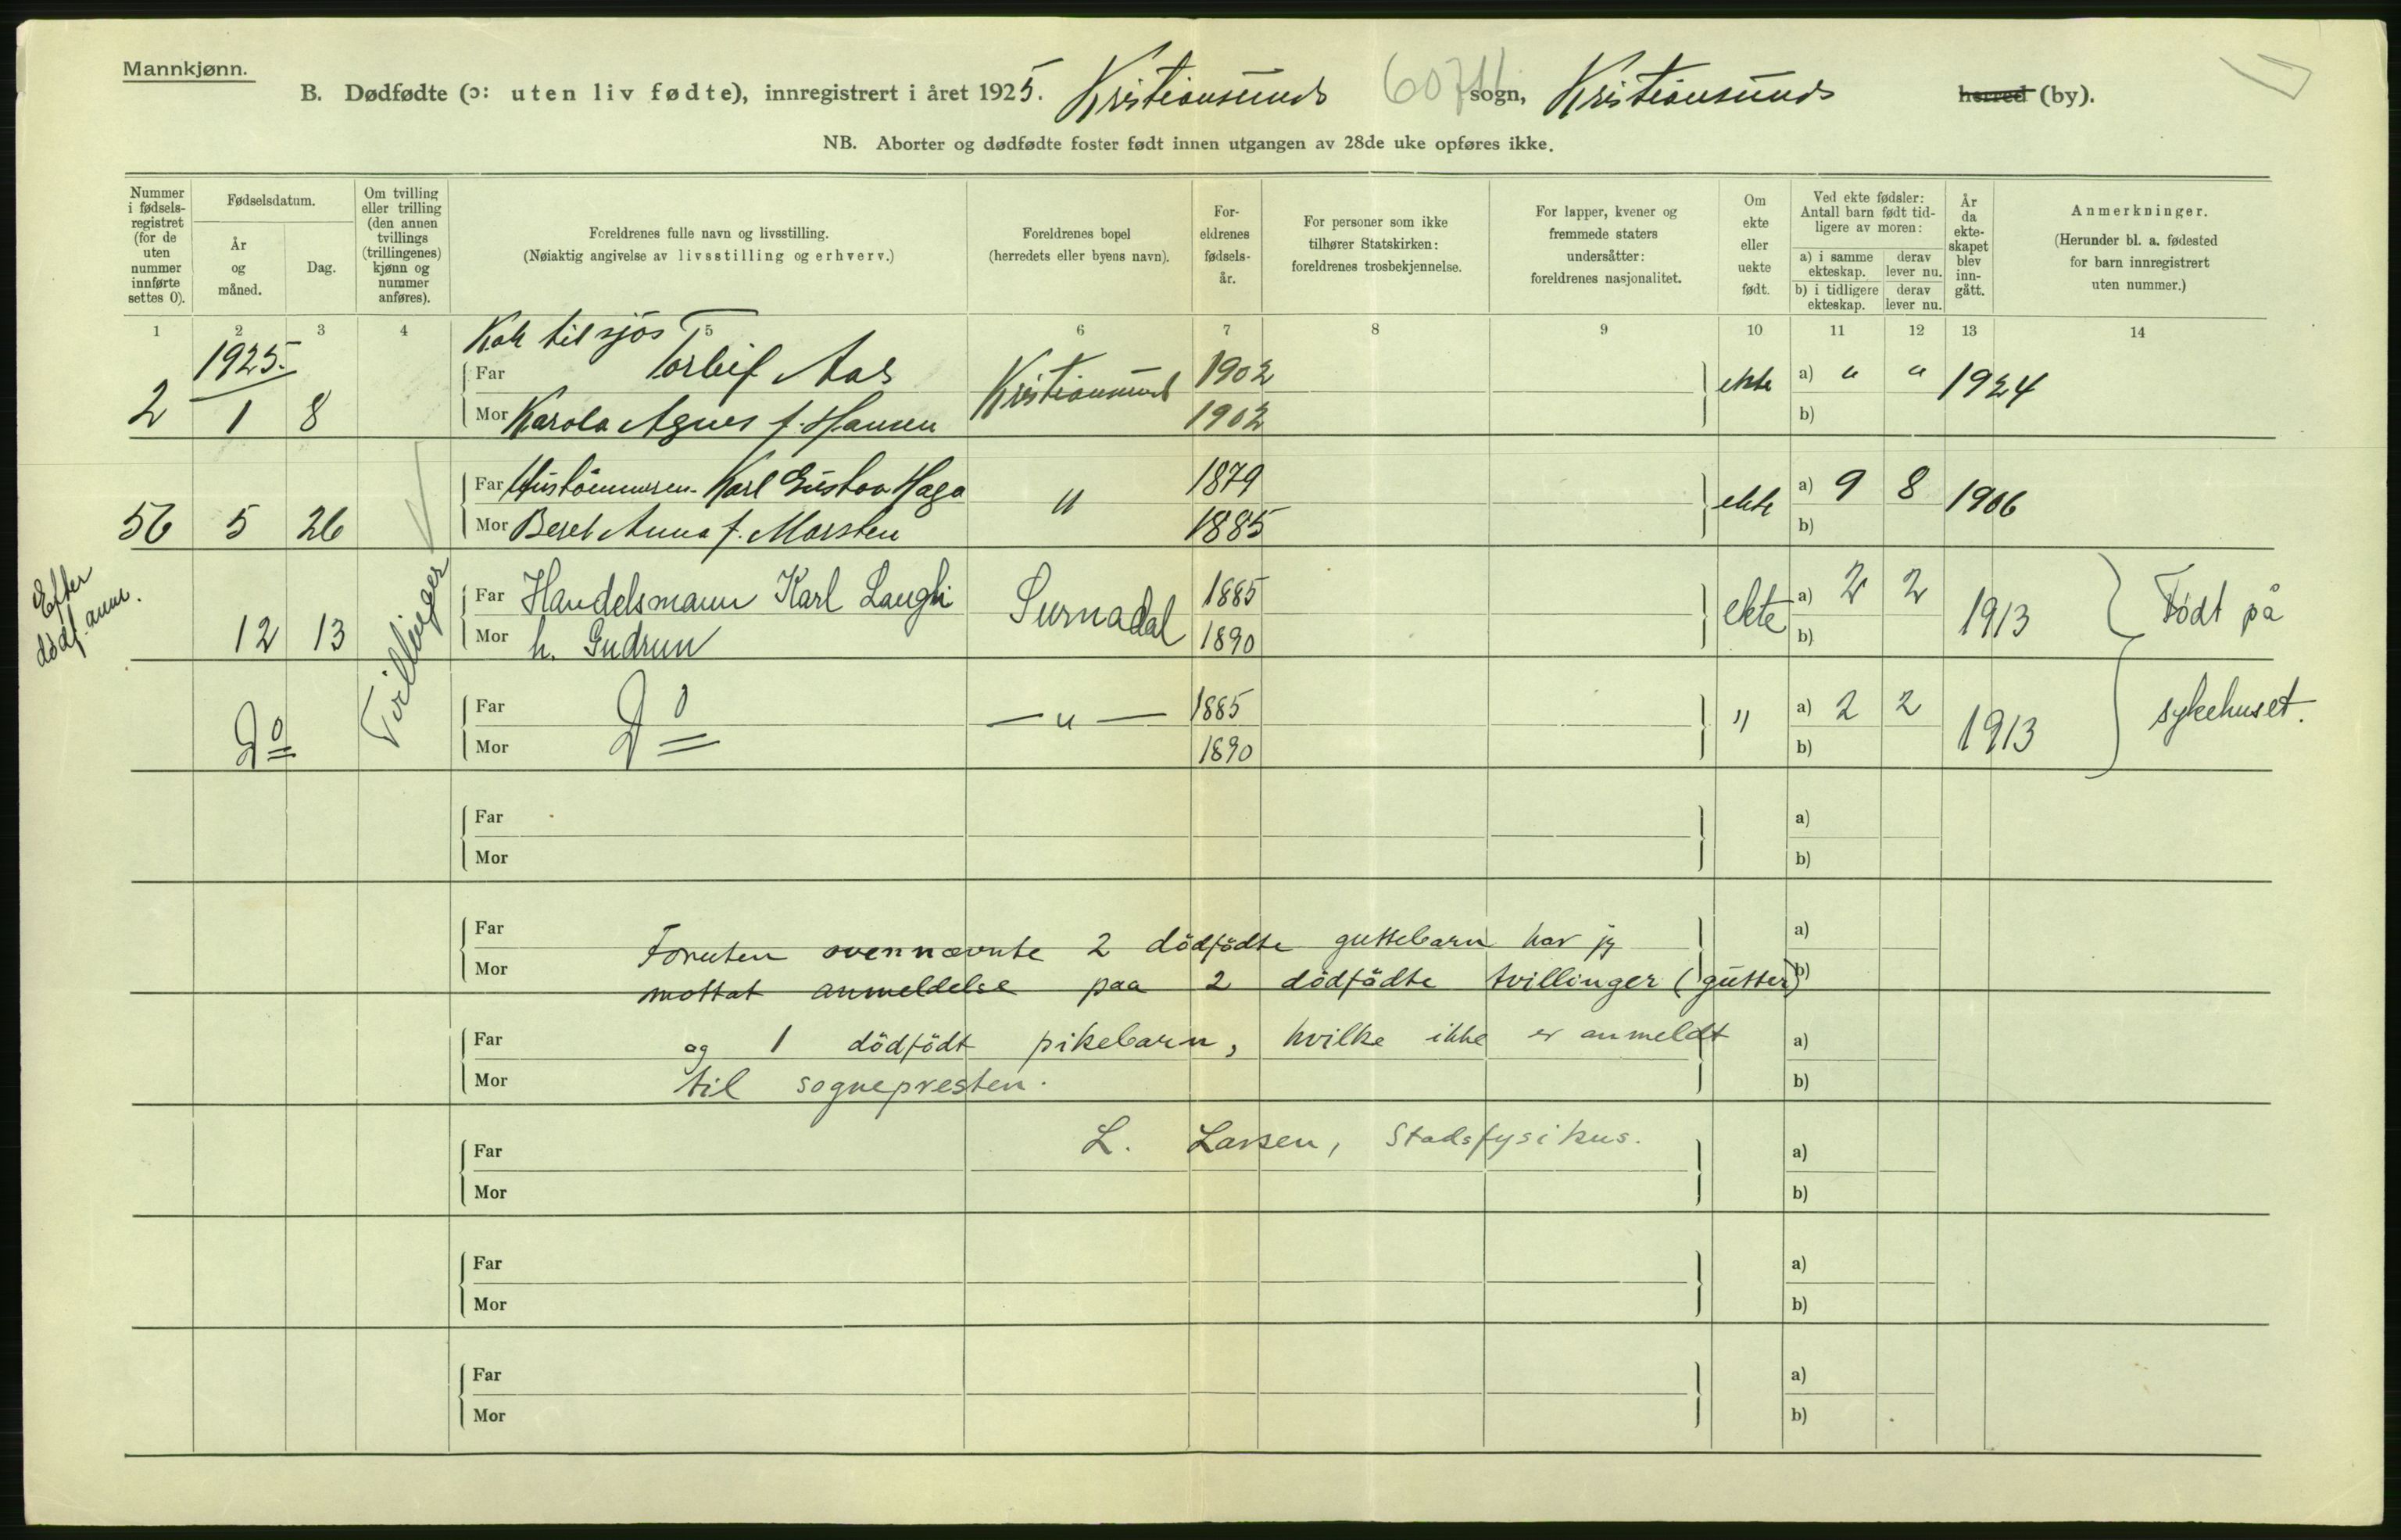 Mannkjønn.
B. Dødfødte (ɔ: uten liv fødte), innregistrert i året 1925. Kristiansunds sogn, Kristiansunds herred (by).
NB. Aborter og dødfødte foster født innen utgangen av 28de uke opføres ikke.
Nummer i fødsels-registret (for de uten nummer innførte settes 0).
Fødselsdatum.
År og måned.
Dag.
Om tvilling eller trilling (den annen tvillings (trillingenes) kjønn og nummer anføres).
Foreldrenes fulle navn og livsstilling.
(Nøiaktig angivelse av livsstilling og erhverv.)
Foreldrenes bopel
(herredets eller byens navn).
For-eldrenes fødsels-år.
For personer som ikke tilhører Statskirken: foreldrenes trosbekjennelse.
For lapper, kvener og fremmede staters undersåtter: foreldrenes nasjonalitet.
Om ekte eller uekte født.
Ved ekte fødsler: Antall barn født tid-ligere av moren:
a) i samme ekteskap.
derav lever nu.
b) i tidligere ekteskap.
derav lever nu.
År da ekte-skapet blev inn-gått.
Anmerkninger.
(Herunder bl. a. fødested for barn innregistrert uten nummer.)
1 2 3 4 5 6 7 8 9 10 11 12 13 14
1925.
Kok til sjøs
2 1 8 Far Torleif Aas Kristiansund 1902 ekte a) " " 1924
Mor Karola Agnes f. Hansen 1902 b)
56 5 26 Far Karl Gustav Haga " 1879 ekte a) 9 8 1906
Mor Beret Anna f. Marsten 1885 b)
Efter dødf. anm.
12 13 Tvillinger Far Handelsmann Karl Langli Surnadal 1885 ekte a) 2 2 1913 Født på
Mor h. Gudrun 1890 b)
Do Far Do — " — 1885 " a) 2 2 1913 sykehuset.
Mor 1890 b)
Far a)
Mor b)
Far a)
Foruten ovennævnte 2 dödfödte guttebarn har jg
Mor b)
mottat anmeldelse paa 2 dödfödte tvillinger (gutter)
Far a)
og 1 dödfödt pikebarn, hvilke ikke er anmeldt
Mor b)
til sognepresten.
L. Larsen, Stadsfysikus.
Far a)
Mor b)
Far a)
Mor b)
Far a)
Mor b)